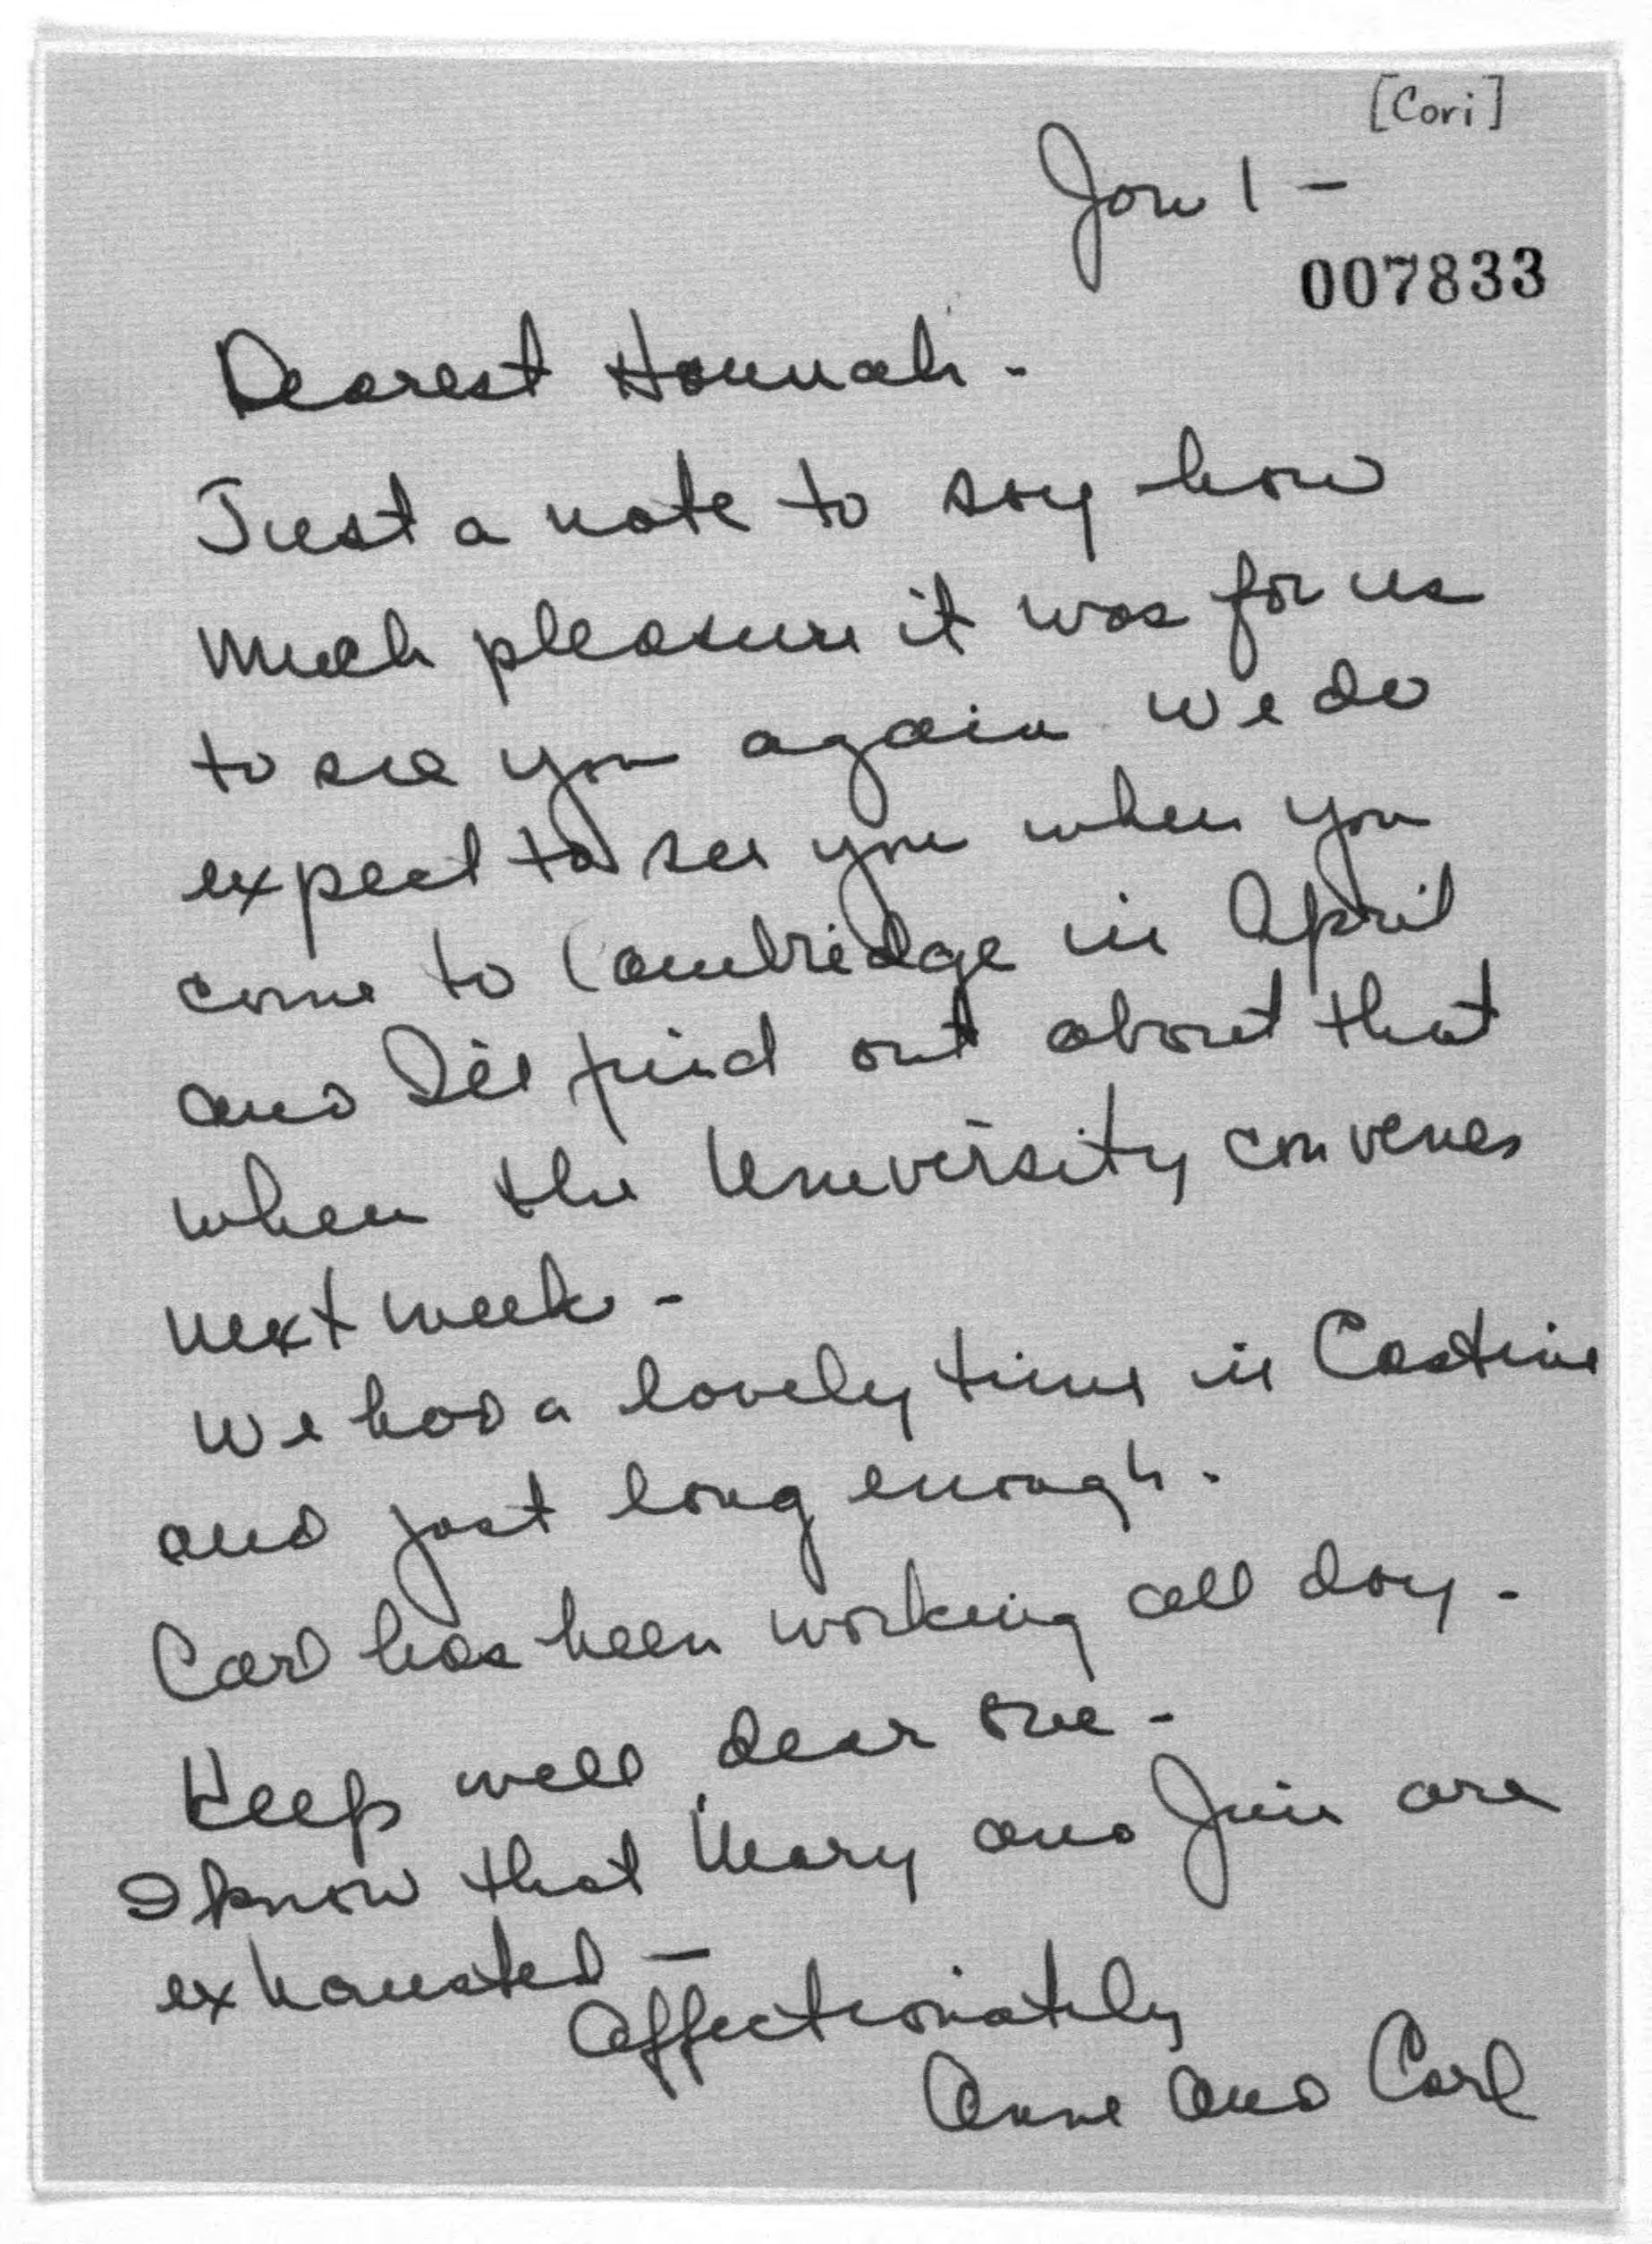 [Cori]
Jan 1 -
007833
Dearest Hannah -
Just a note to say how
much pleasure it was for us
to see you again we do
expect to see you when you
come to Cambridge in April
and I'll find out about that
when the University convenes
next week -
We had a lovely time in Castine
and just long enough.
Carl has been working all day -
Keep well dear one -
I know that Mary and Jim are
exhausted -
Affectionately
Anne and Carl